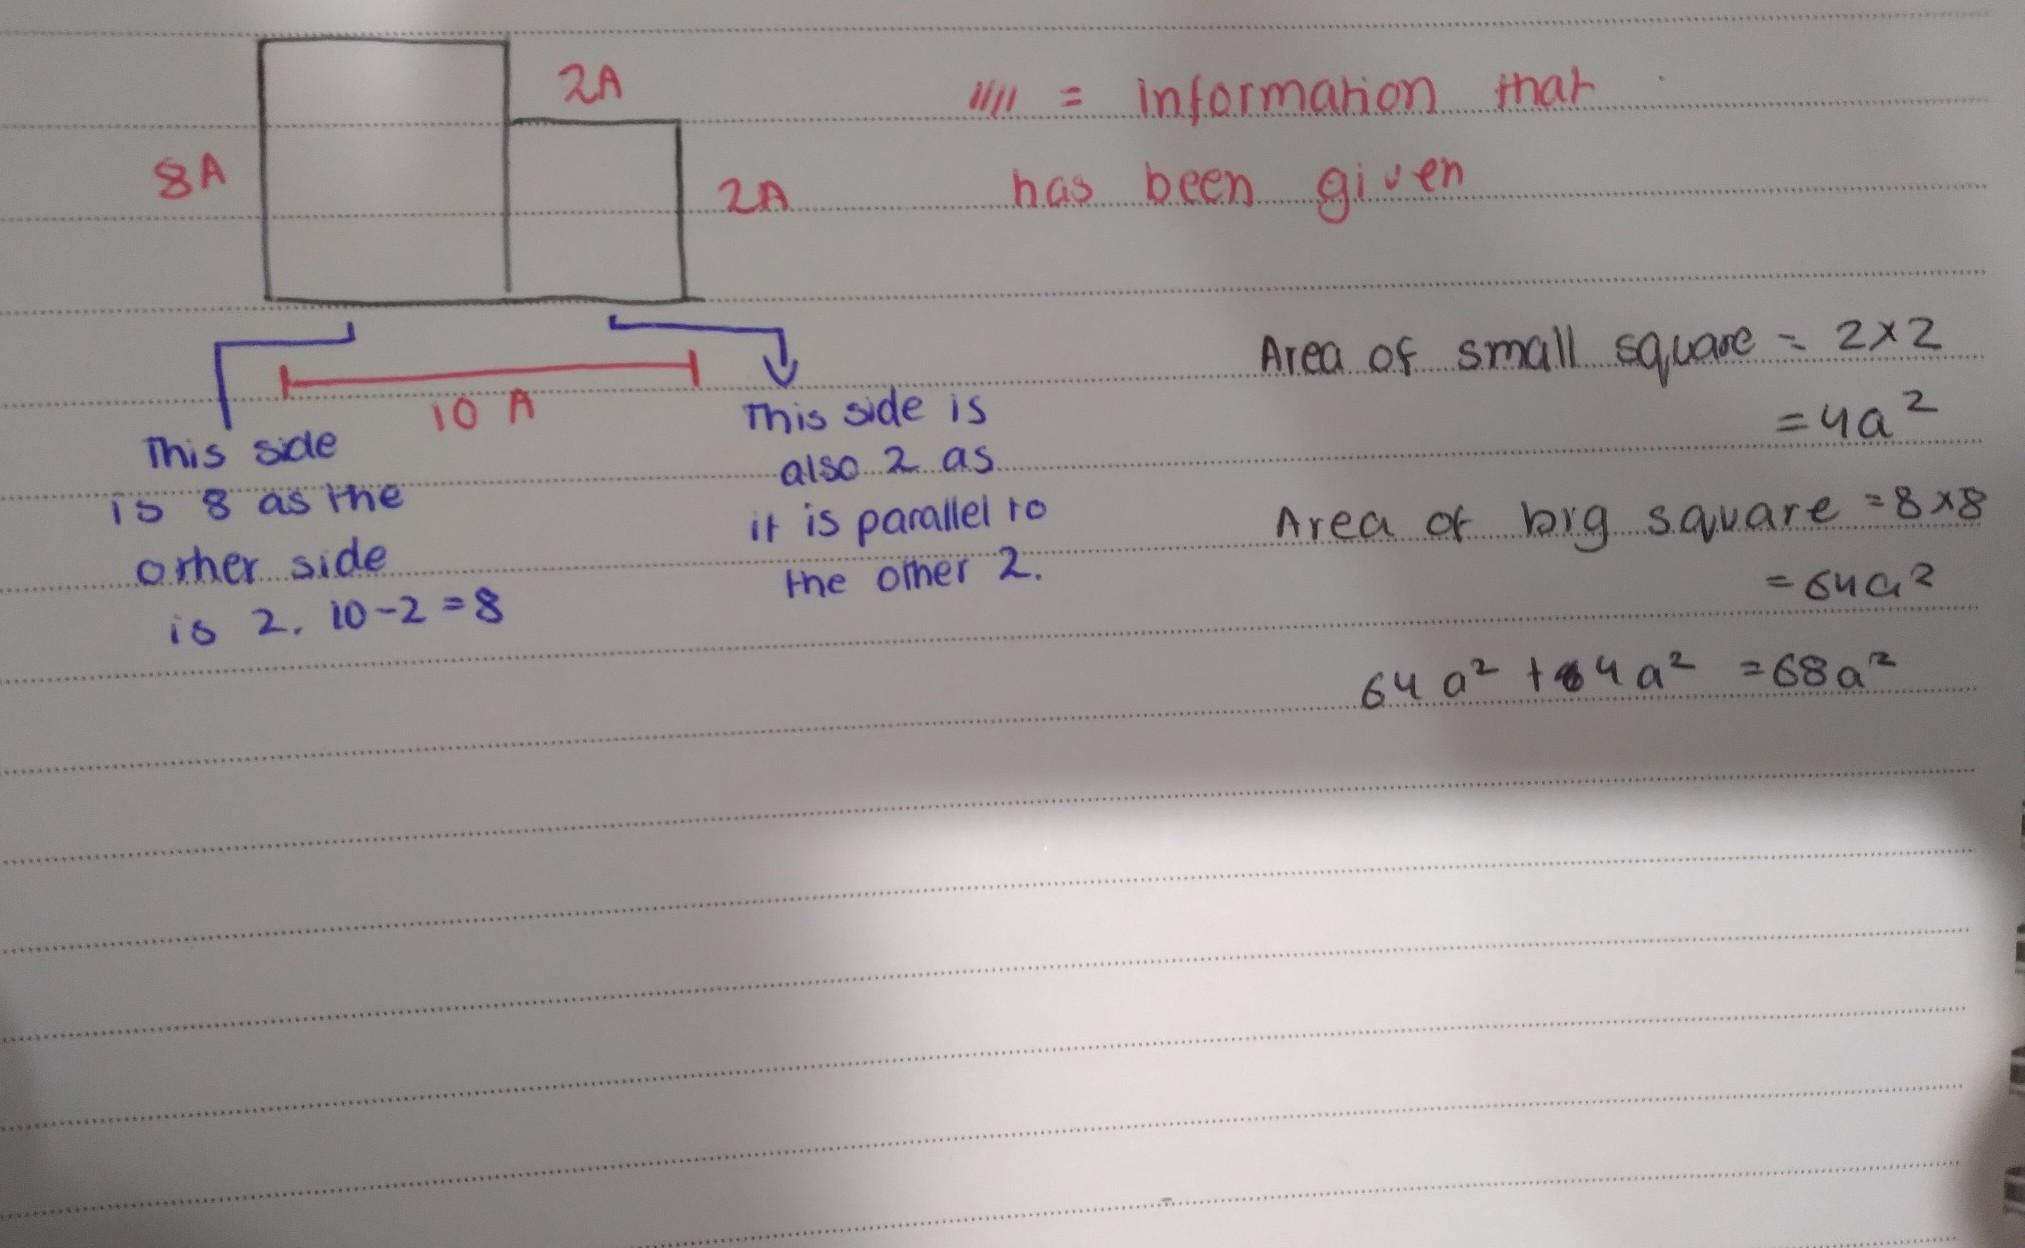 2A
8A
2A
//// = information that
has been given
10 A
This side
is 8 as the
other side
is 2. 10-2=8
This side is
also 2 as
it is parallel to
the other 2.
Area of small square = 2x2
=4a²
Area of big square =8x8
=64a²
64a² + 4a² =68a²